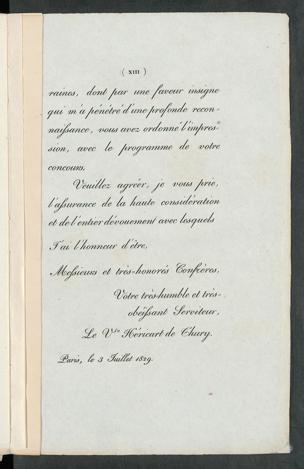 ( XIII )
raines, dont par une faveur insigne
qui m'a pénétré d'une profonde recon-
naissance, vous avez ordonné l'impres-
sion, avec le programme de votre
concours.
Veuillez agréer, je vous prie,
l'assurance de la haute considération
et de l'entier dévouement avec lesquels
J'ai l'honneur d'être,
Messieurs et très-honorés Confrères,
Votre très-humble et très-
obéissant Serviteur,
Le Vte Héricart de Thury.
Paris, le 3 Juillet 1829.